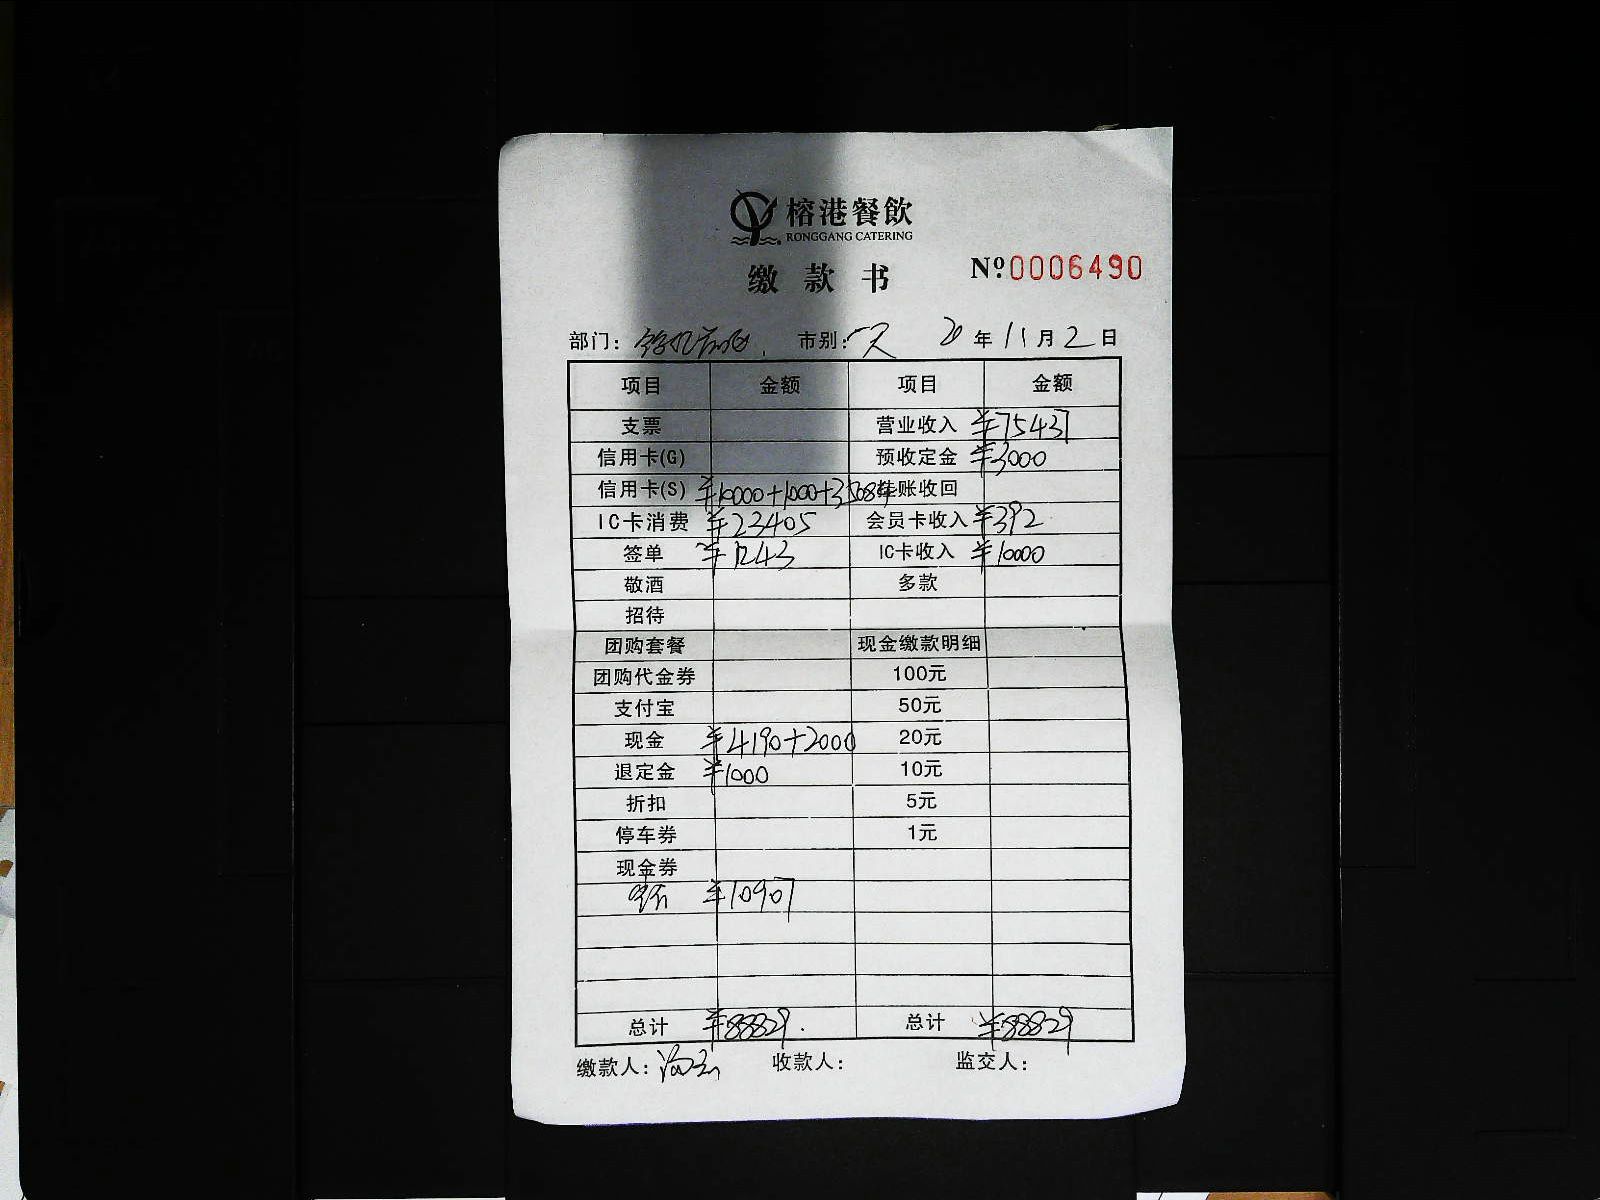 榕港餐飲
RONGGANG CATERING
缴款书
Nº 0006490
部门: 市别: 天 20年11月2日
项目 金额 项目 金额
支票 营业收入 ¥75437
信用卡(G) 预收定金 ¥3000
信用卡(S) ¥10000+1000+35084 挂账收回
IC卡消费 ¥23405 会员卡收入 ¥392
签单 ¥1243 IC卡收入 ¥10000
敬酒 多款
招待
团购套餐 现金缴款明细
团购代金券 100元
支付宝 50元
现金 ¥4190+2000 20元
退定金 ¥1000 10元
折扣 5元
停车券 1元
现金券
¥10907
总计 ¥88829. 总计 ¥88829
缴款人: 收款人: 监交人: